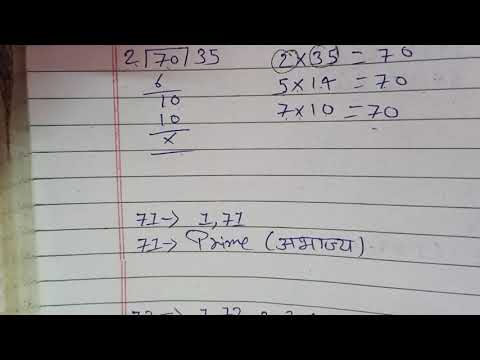 2 70 35
6
10
10
x
2×35 = 70
5×14 = 70
7×10 = 70
71→ 1,71
71→ Prime (अभाज्य)